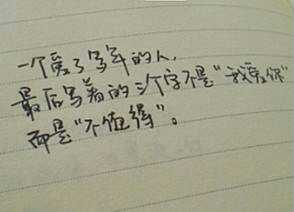 一个爱了多年的人，
最后写着的三个字不是“我爱你”
而是“不值得”。